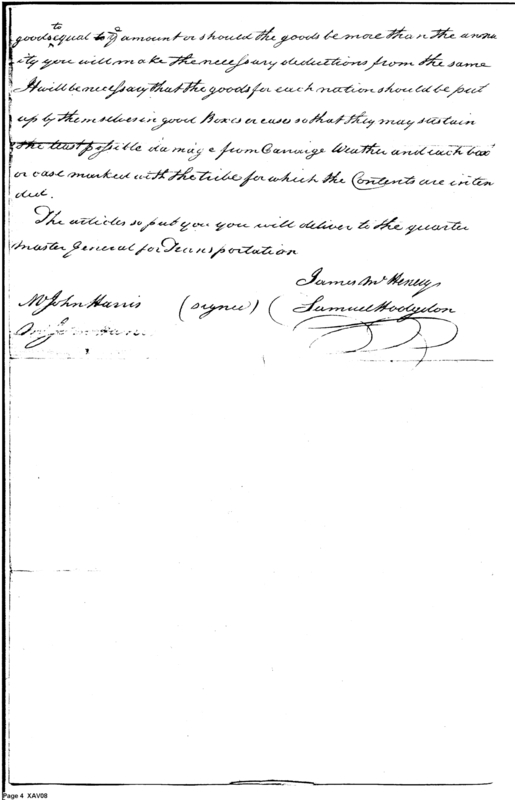 to
goods equal to ye amount or should the goods be more than the annu
ity you will make the necessary deductions from the same
It will be necessary that the goods for each nation should be put
up by themselves in good Boxes or cases so that they may sustain
the least possible damage from Carraige Weather and each box
or case marked with the tribe for which the Contents are inten
ded.
The articles so put you you will deliver to the quarter
Master General for Transportation
James McHenry
Mr John Harris (signed) ( Samuel Hodgdon
Page 4 XAV08